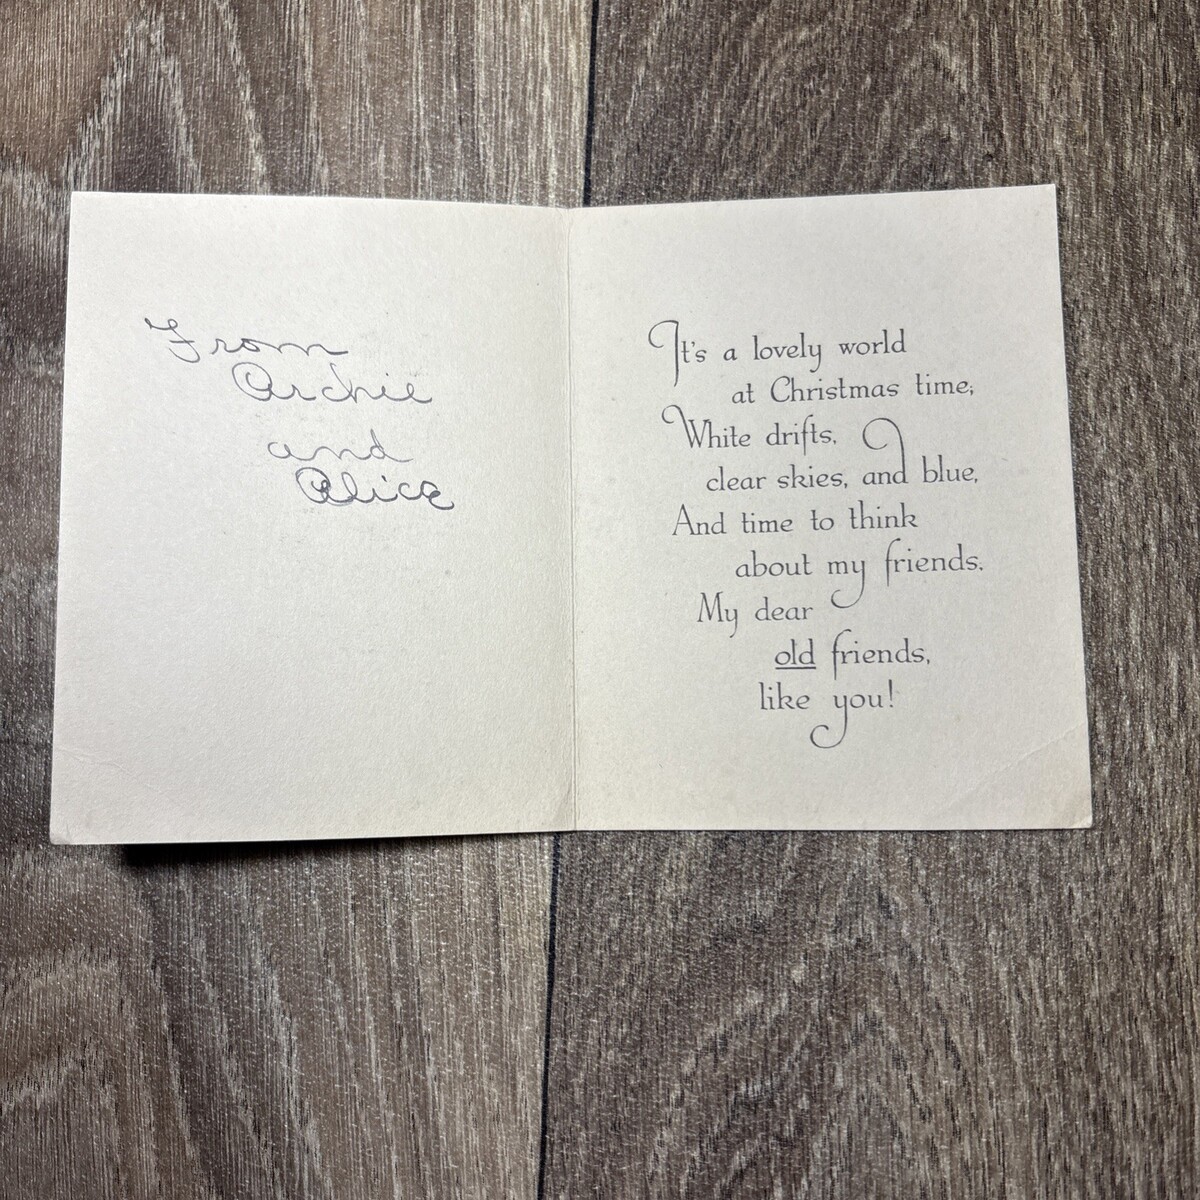 From
Archie
and
Alice
It's a lovely world
at Christmas time;
White drifts,
clear skies, and blue,
And time to think
about my friends.
My dear
old friends,
like you!